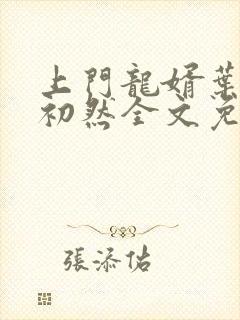 上門龍婿葉
初然全文免
張添佑